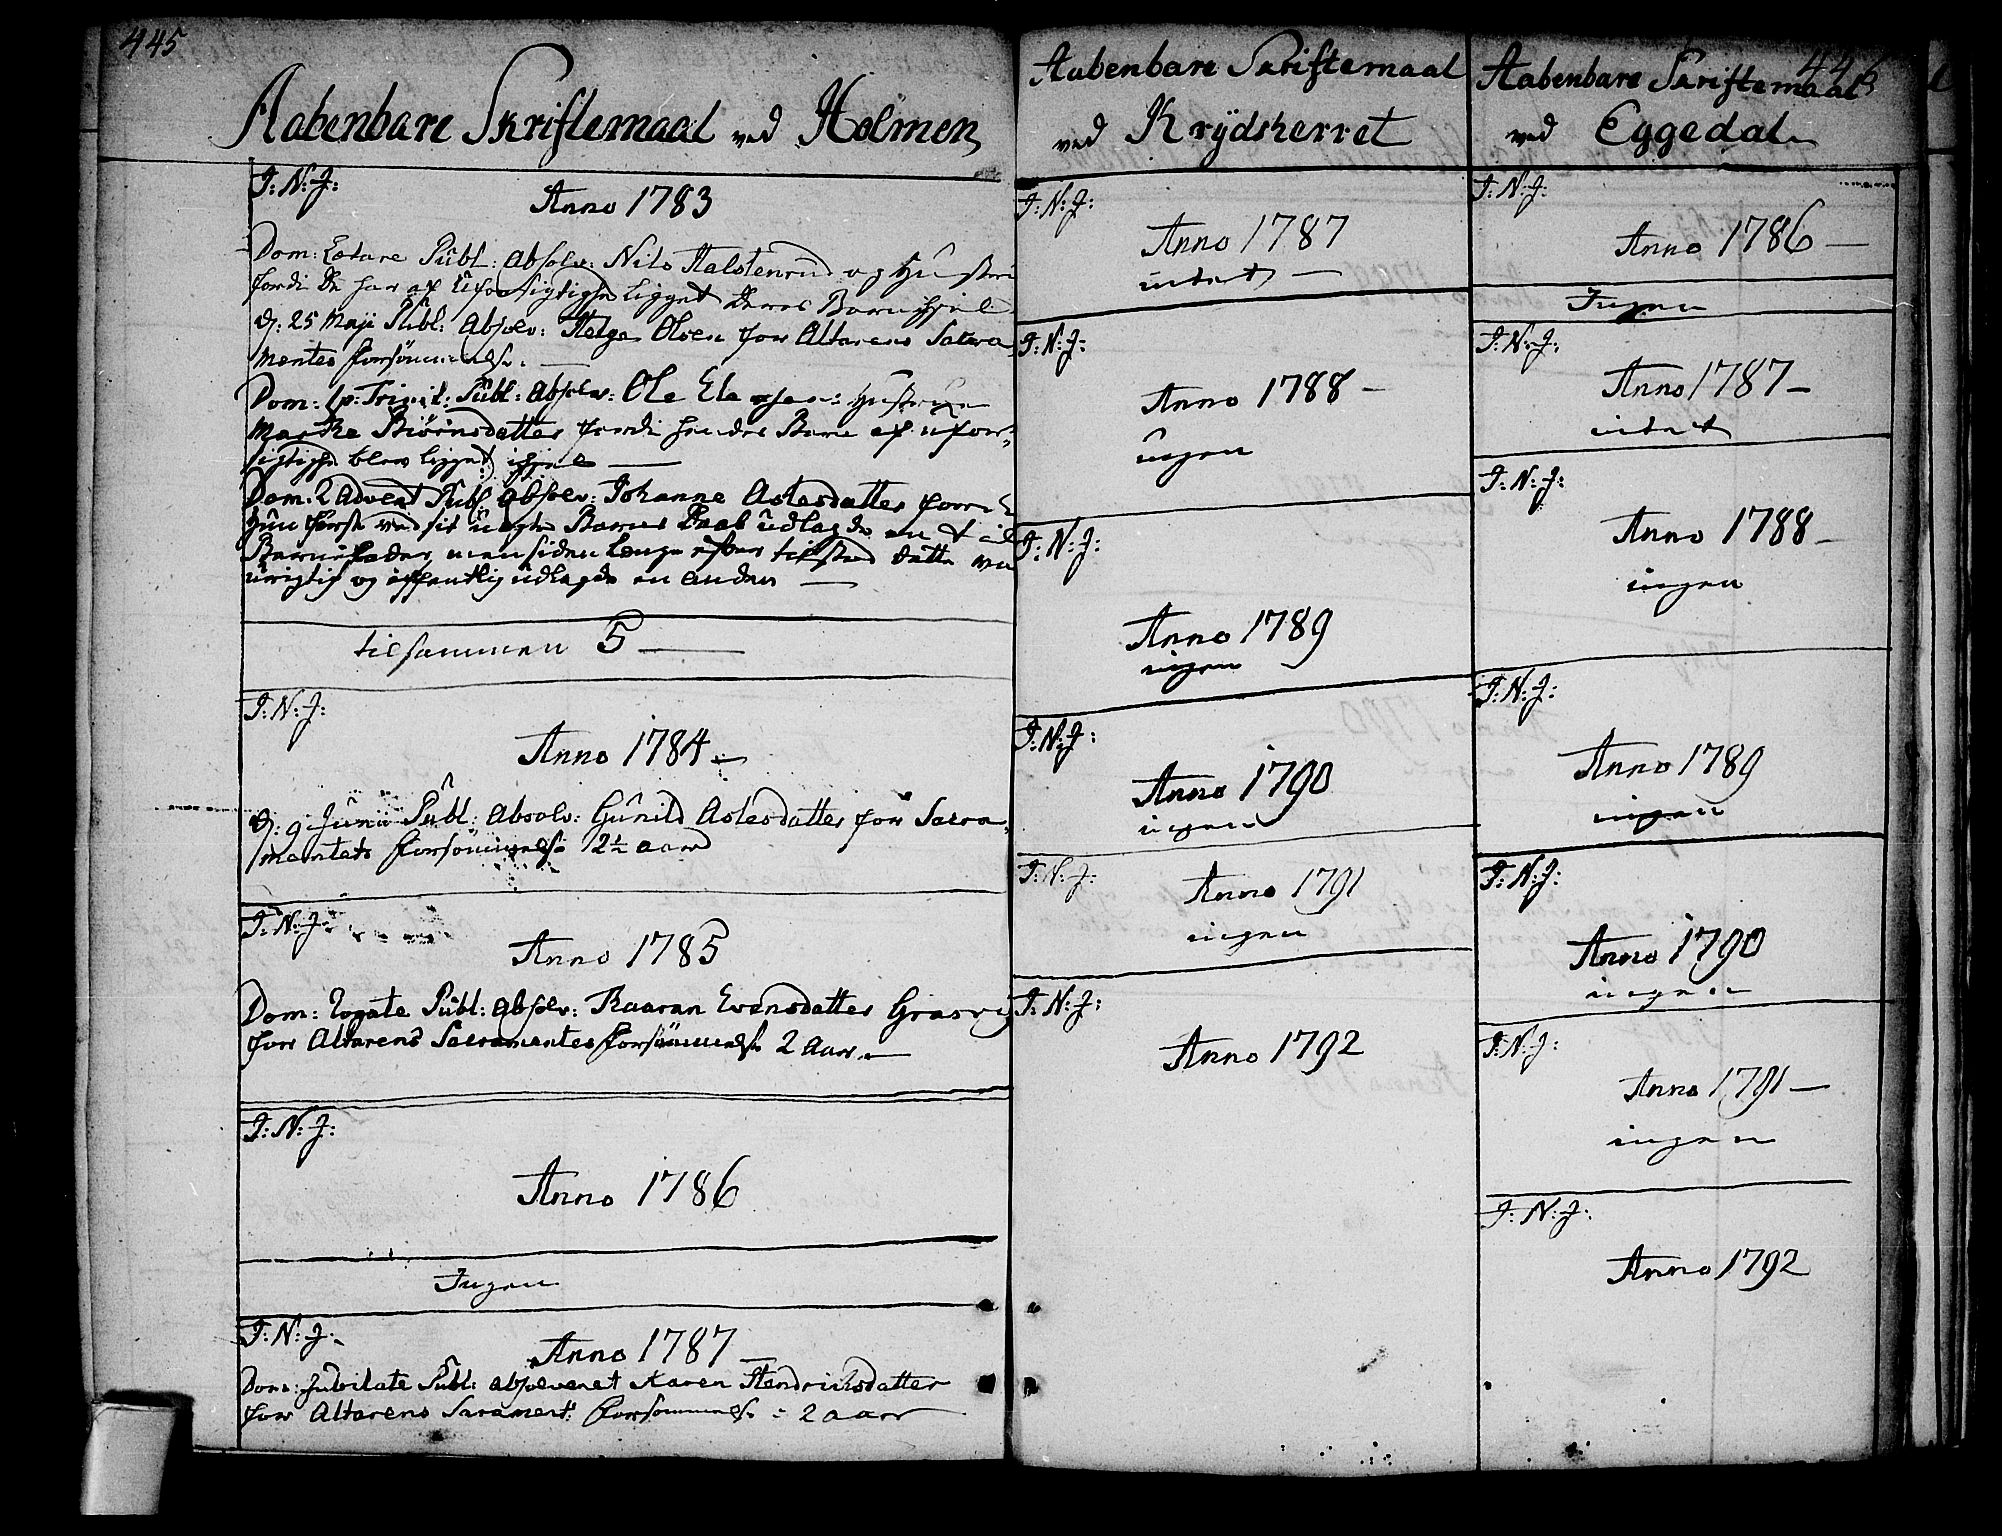 445
Aabenbare Skriftemaal ved Holmen
J: N: J:
Anno 1783
Dom: Lætare Publ: Absolv: Nils Halstenrud og Hustru
fordi De har af Uforsigtighe ligget Deres Barn ihjel
d: 25 Maji Publ: Absolv: Helge Olsen for Altarens Sacra
mentes Forsömmelse. —
Dom: 1 p: Trinit: Publ: Absolv: Ole Hustrue
Marthe Biörnsdatter fordi hendes Barn af ufor-
sigtighe blev ligget ihjel —
Dom: 2 Advent Publ: Absolv: Johanne Aslesdatter fordi
hun först ved sit uægte Barns Daab udlagde een til
Barnefader, men siden længe efter tilstod dette var
urigtig og offentlig udlagde en anden —
tilsammen 5 —
J: N: J:
Anno 1784 —
d: 9 Junii Publ: Absolv: Gunild Aslesdatter for Sacra-
mentets Forsömmelse 2½ aar
J: N: J:
Anno 1785
Dom: Rogate Publ: Absolv: Kaaran Evensdatter
for Altarens Sacramentes Forsömmelse 2 Aar. —
J: N: J:
Anno 1786
Ingen
J: N: J:
Anno 1787 —
Dom: Jubilate Publ: absolveret Karen Hendrichsdatter
for Altarens Sarament: Forsommelse = 2 aar
Aabenbare Skriftemaal
ved Krydsherret
J: N: J:
Anno 1787
intet —
J: N: J:
Anno 1788 —
ingen
J: N: J:
Anno 1789
ingen
J: N: J:
Anno 1790
ingen
J: N: J:
Anno 1791
ingen
J: N: J:
Anno 1792
446
Aabenbare Skriftemaal
ved Eggedal
J: N: J:
Anno 1786 —
Ingen
J: N: J:
Anno 1787 —
intet
J: N: J:
Anno 1788 —
ingen
J: N: J:
Anno 1789
ingen
J: N: J:
Anno 1790
ingen
J: N: J:
Anno 1791 —
ingen
J: N: J:
Anno 1792